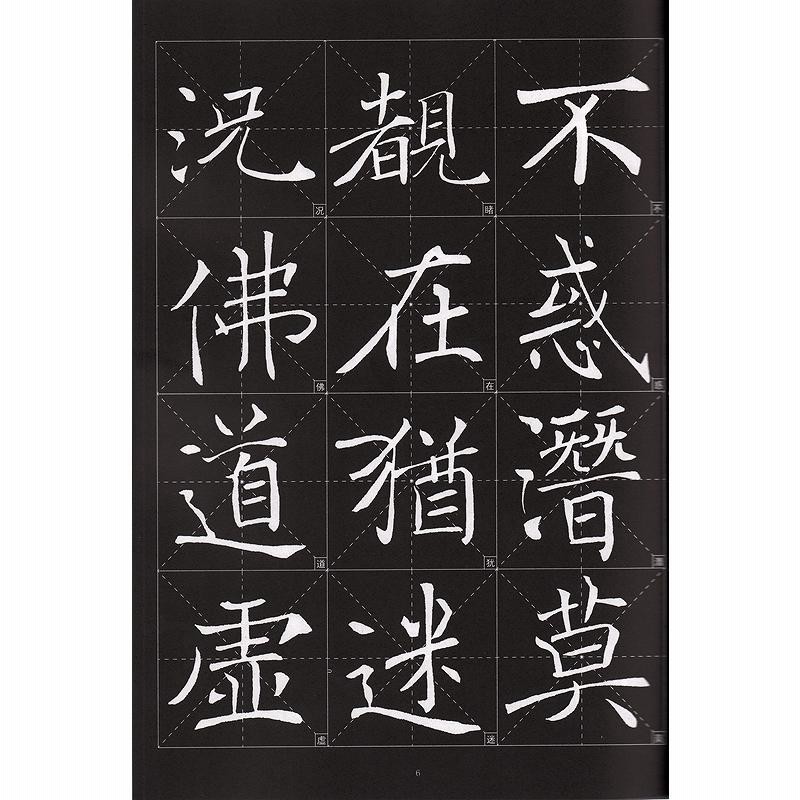 不惑潛莫
覩在猶迷
況佛道虛
不
惑
睹
在
犹
迷
况
佛
道
虚
6